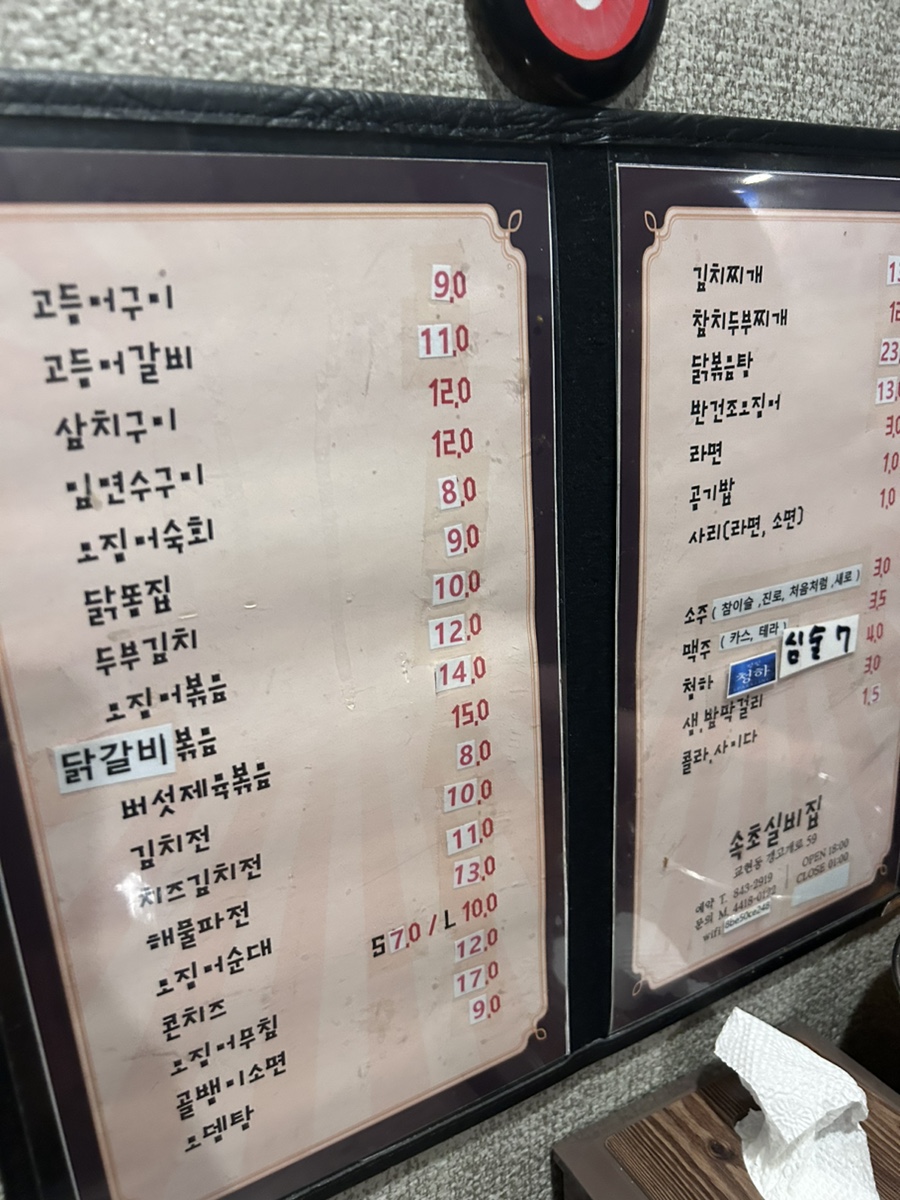 고등어구이 9.0
고등어갈비 11.0
삼치구이 12.0
임연수구이 12.0
오징어숙회 8.0
닭똥집 9.0
두부김치 10.0
오징어볶음 12.0
닭갈비볶음 14.0
버섯제육볶음 15.0
김치전 8.0
치즈김치전 10.0
해물파전 11.0
오징어순대 13.0
콘치즈 S7.0 / L 10.0
오징어무침 12.0
골뱅이소면 17.0
오뎅탕 9.0
김치찌개
참치두부찌개
닭볶음탕 23.
반건조오징어 13.0
라면 3.0
공기밥 1.0
사리(라면, 소면) 1.0
소주 ( 참이슬 ,진로, 처음처럼 ,새로 ) 3.0
맥주 ( 카스, 테라 ) 3.5
청하 청하 심술 7 4.0
생,밤막걸리 3.0
콜라,사이다 1.5
속초실비집
교현동 경고개로 59
예약 T. 843-2919 OPEN 18:00
문의 M. 4418-0122 CLOSE 01:00
wifi 5be50ce248